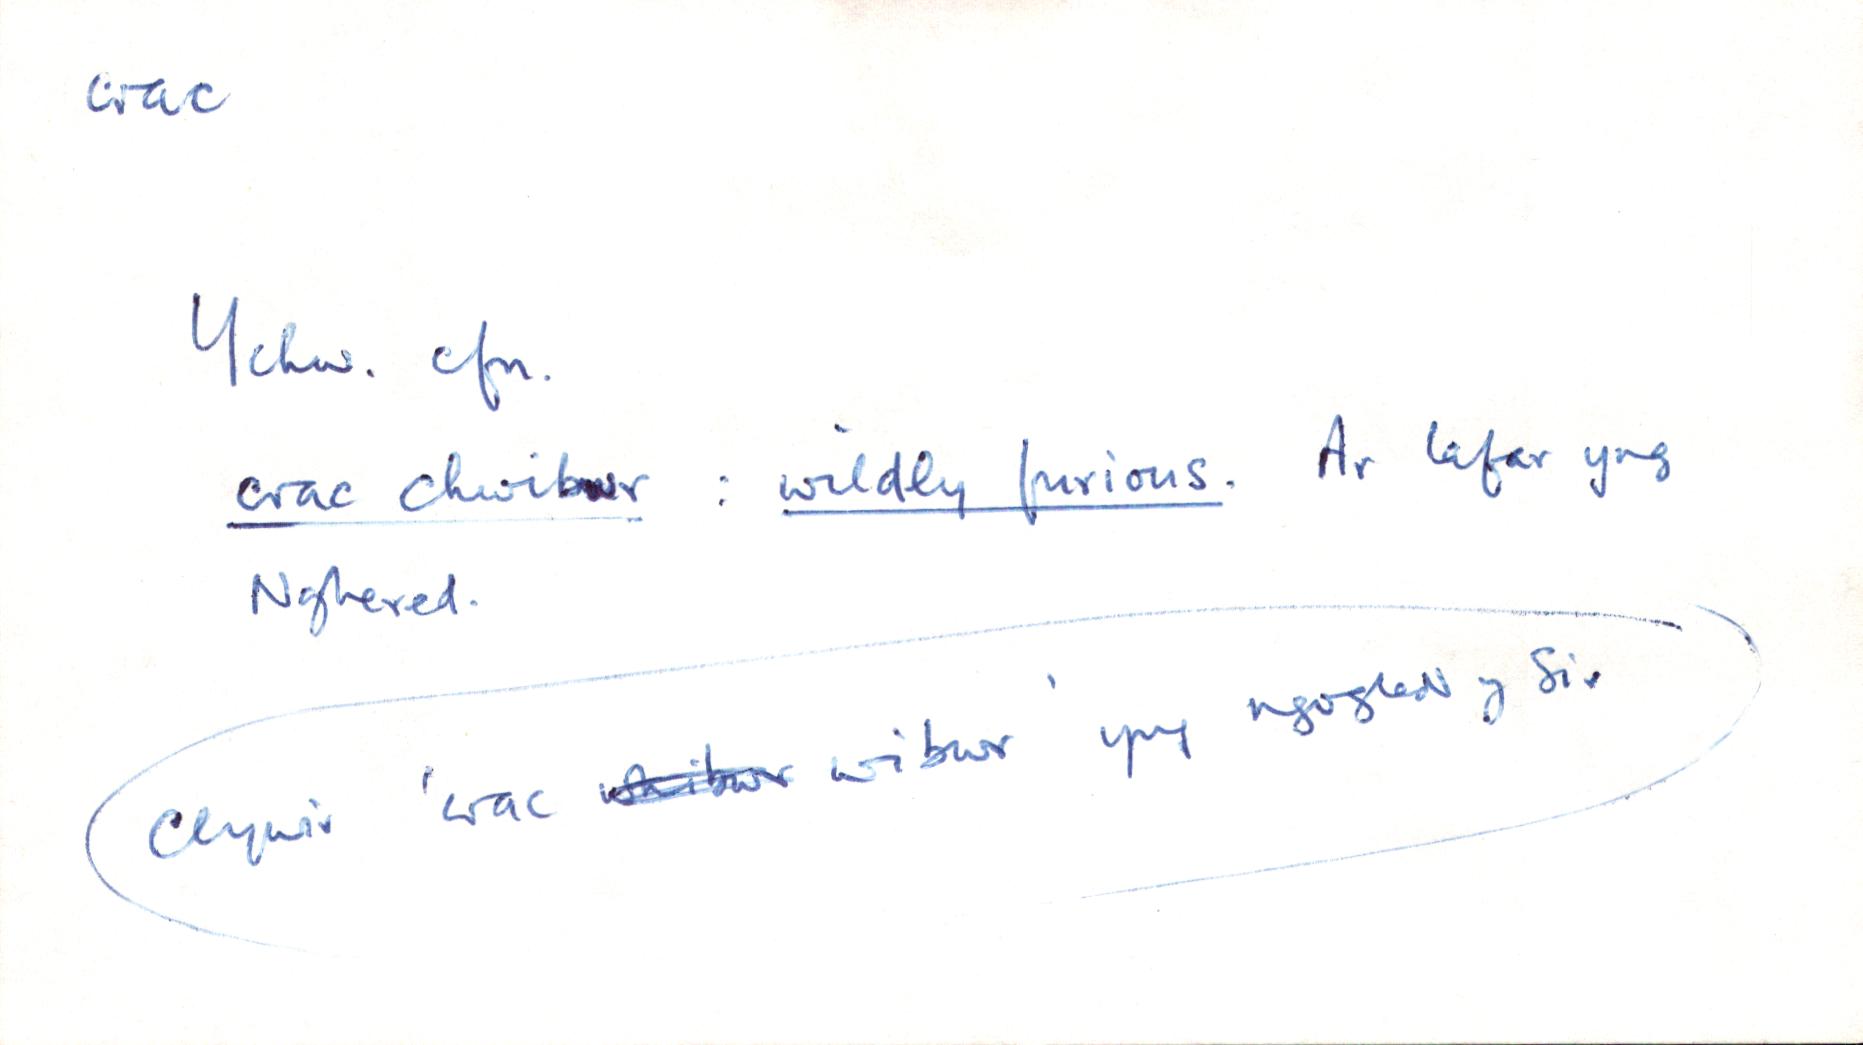 crac
Ychw. cfn.
crac chwibwr : wildly furious. Ar lafar yng
Nghered.
Clywir 'crac wibwr' yng ngogledd y Sir